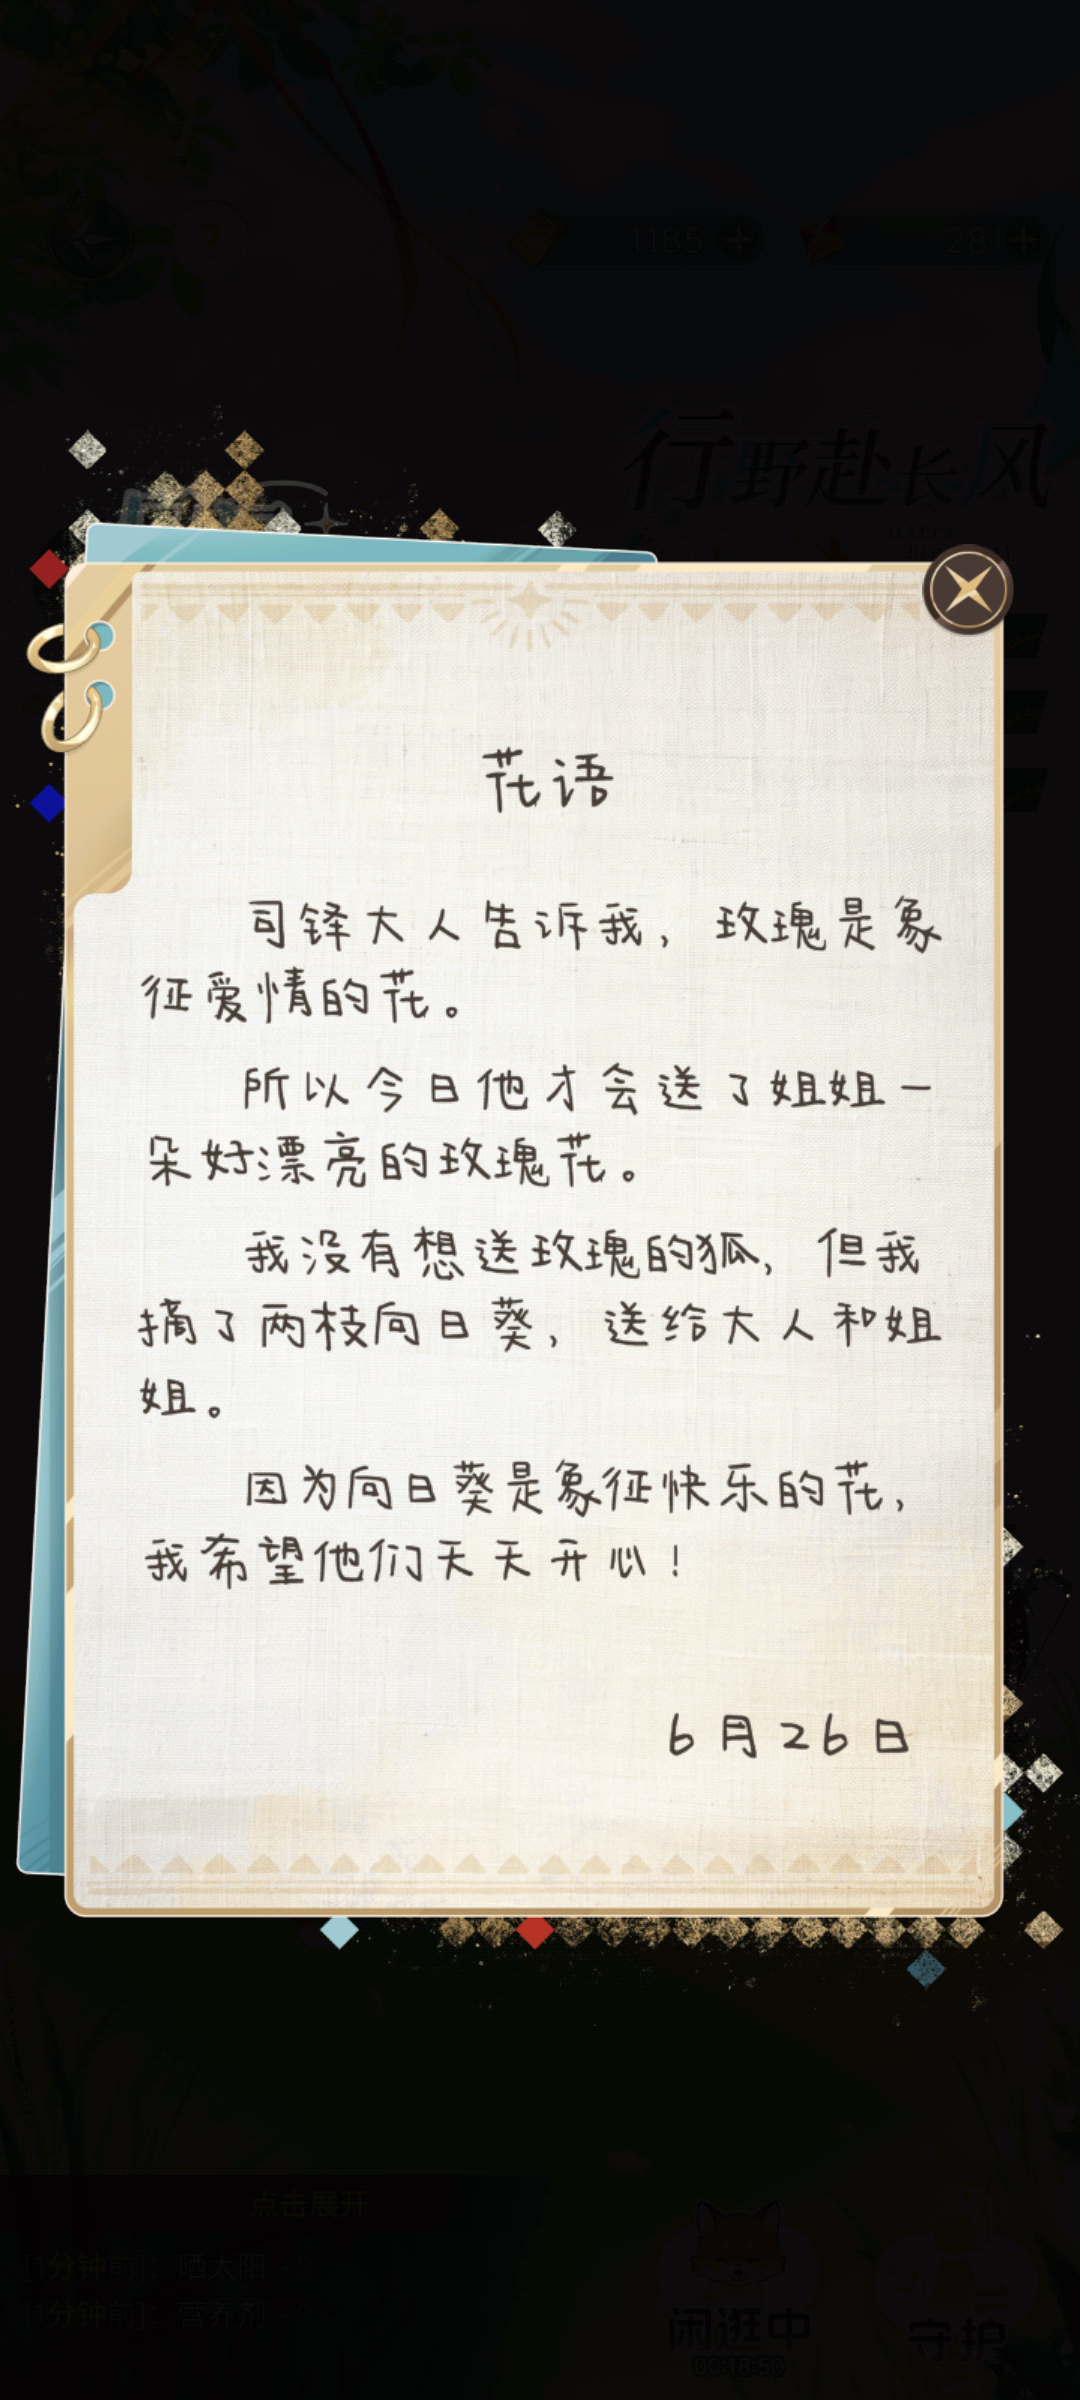 1185
28
行野赴长风
花语
司铎大人告诉我，玫瑰是象
征爱情的花。
所以今日他才会送了姐姐一
朵好漂亮的玫瑰花。
我没有想送玫瑰的狐，但我
摘了两枝向日葵，送给大人和姐
姐。
因为向日葵是象征快乐的花，
我希望他们天天开心！
6月26日
点击展开
[1分钟前]：晒太阳 +9
[1分钟前]：营养剂 +9
闲逛中
守护
00:18:50